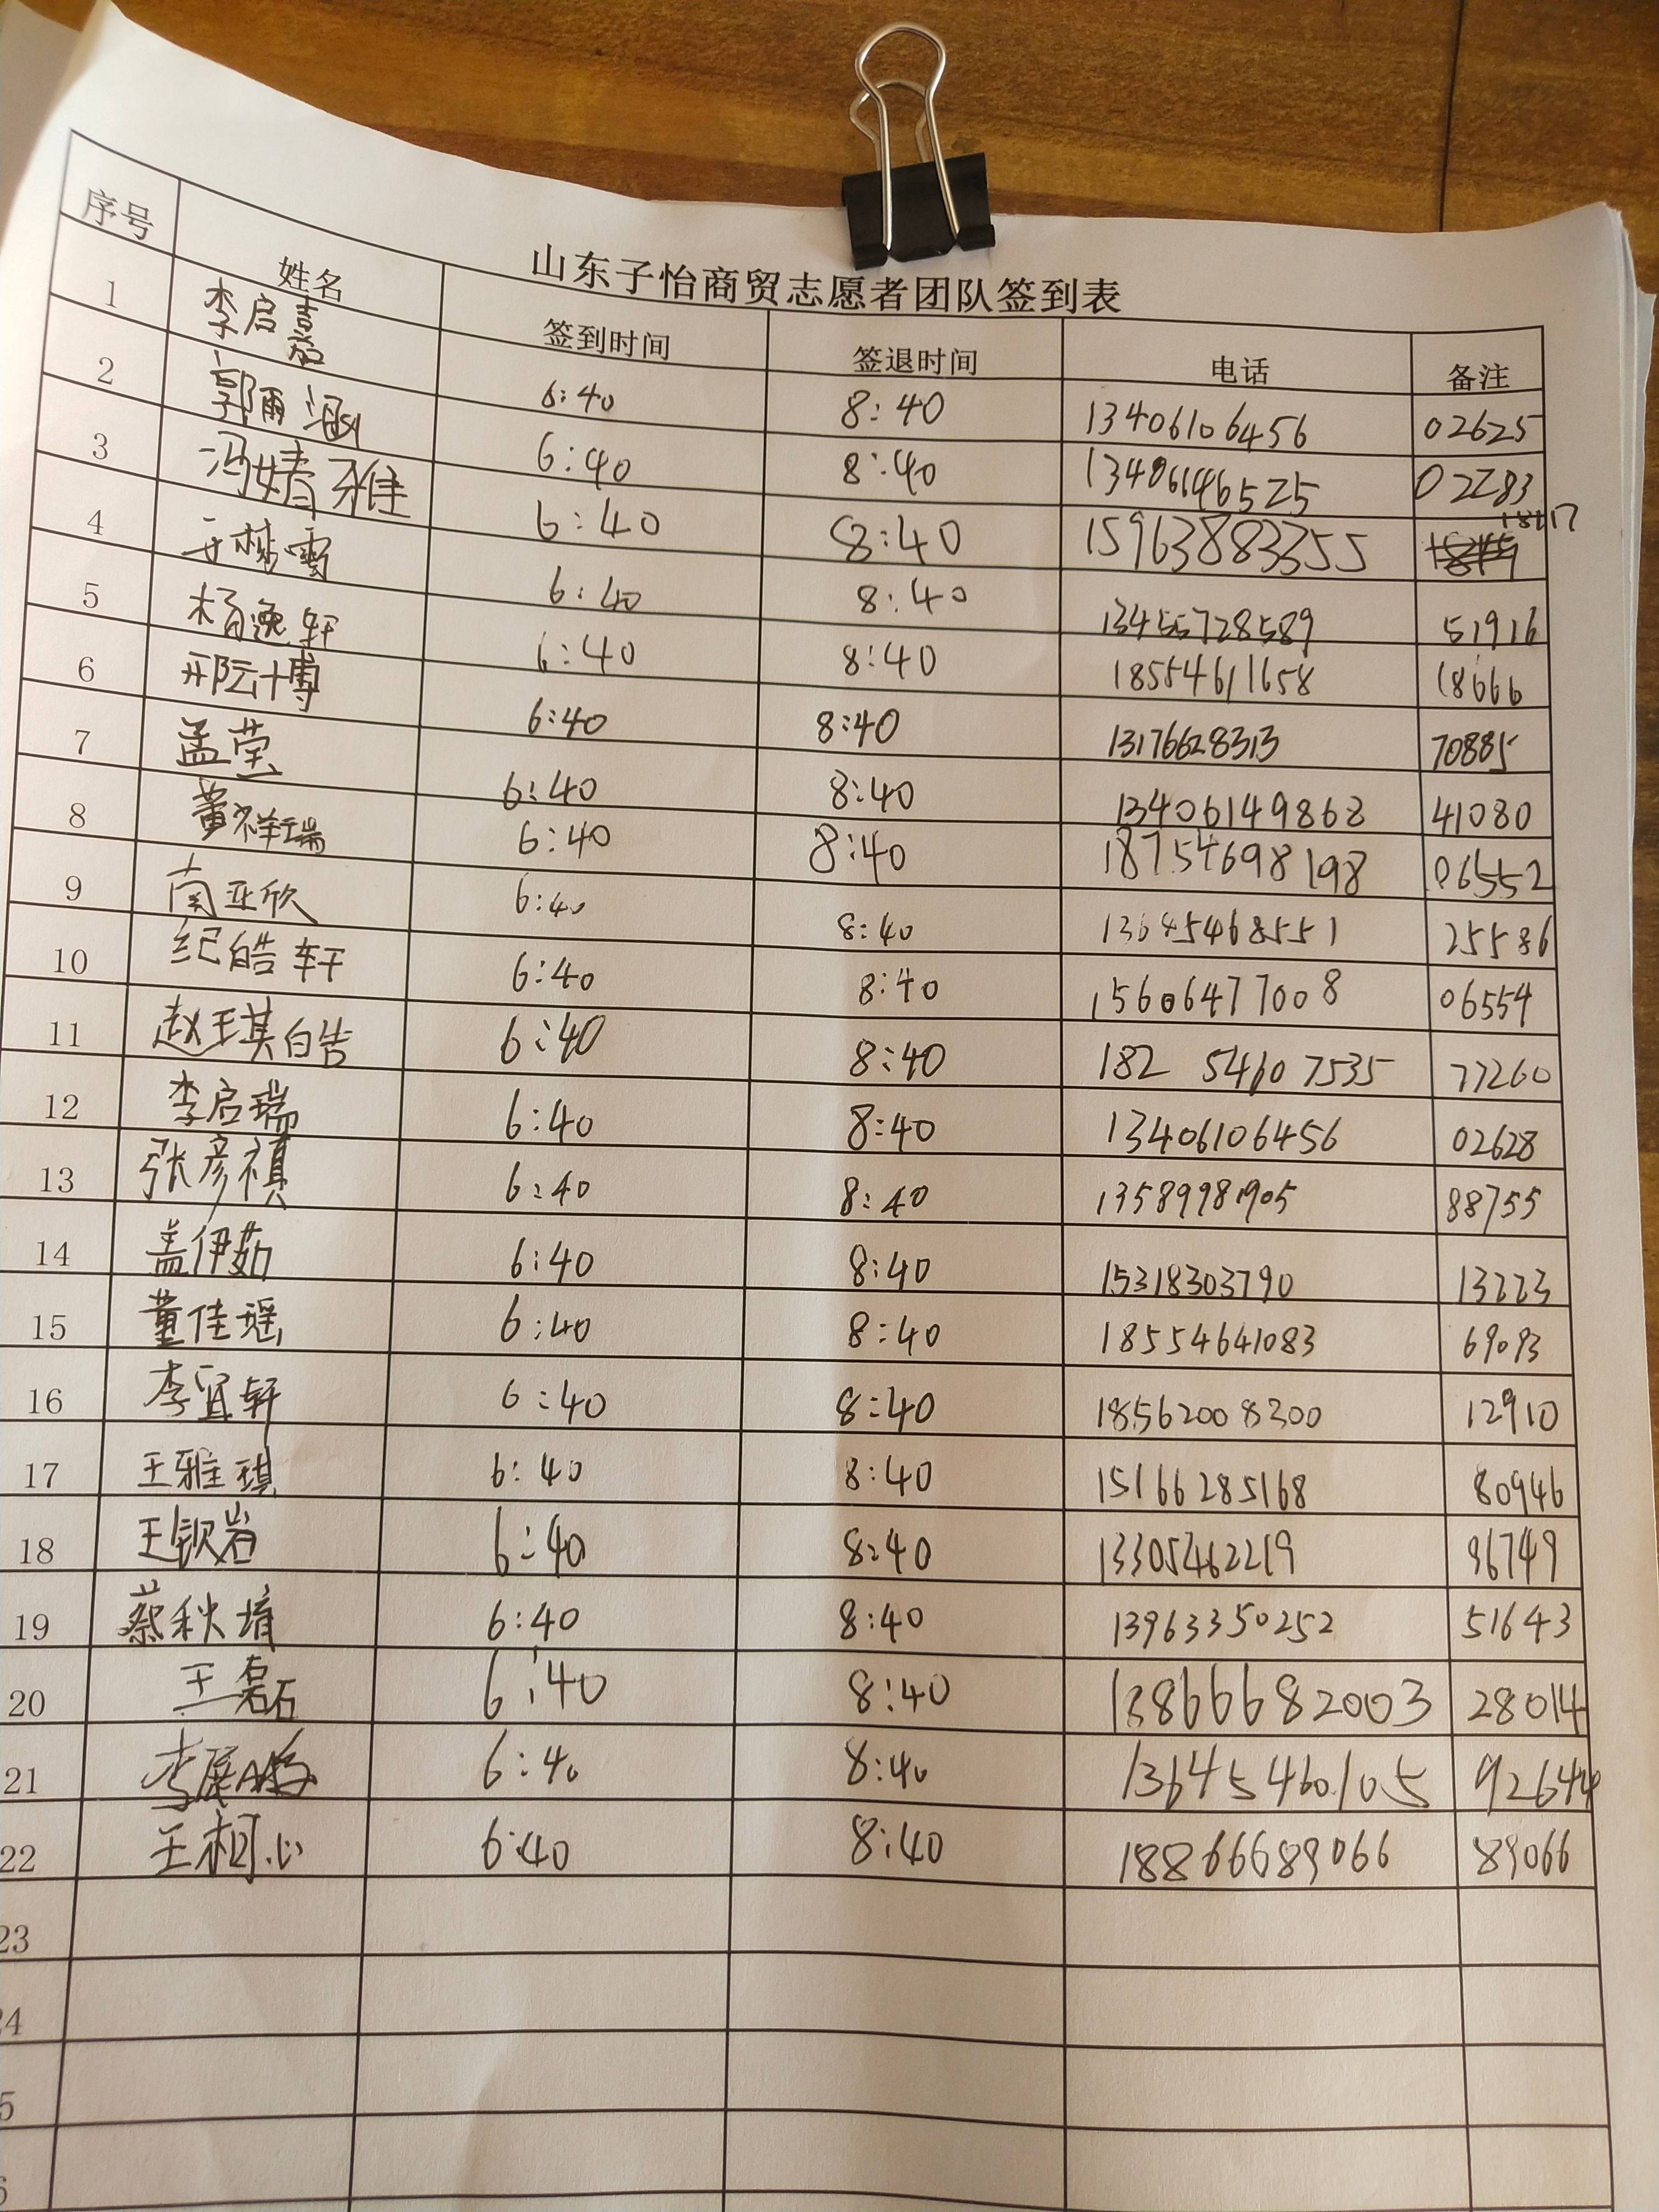 山东子怡商贸志愿者团队签到表
序号 姓名 签到时间 签退时间 电话 备注
1 李启嘉 6:40 8:40 13406106456 02625
2 郭雨涵 6:40 8:40 13406146525 02283
3 冯婧雅 6:40 8:40 15963883355
4 于梦雪 6:40 8:40 13455728589 51916
5 杨逸轩 6:40 8:40 18554611658 18666
6 邢云博 6:40 8:40 13176628313 70885
7 孟莹 6:40 8:40 13406149868 41080
8 黄祥瑞 6:40 8:40 18754698198 06552
9 南亚欣 6:40 8:40 13645468551 25586
10 纪皓轩 6:40 8:40 15606477008 06554
11 赵王琪皓 6:40 8:40 182 54607535 77260
12 李启瑞 6:40 8:40 13406106456 02628
13 张彦禛 6:40 8:40 13589981905 88755
14 盖伊茹 6:40 8:40 15318303790 13223
15 董佳瑶 6:40 8:40 18554641083 69093
16 李宜轩 6:40 8:40 18562008300 12910
17 王雅琪 6:40 8:40 15166285168 80946
18 王钦岩 6:40 8:40 13305462219 96749
19 蔡秋堉 6:40 8:40 13963350252 51643
20 王磊 6:40 8:40 13866682003 28014
21 李 6:40 8:40 13645460105 92644
22 王相心 6:40 8:40 18866689066 89066
23
24